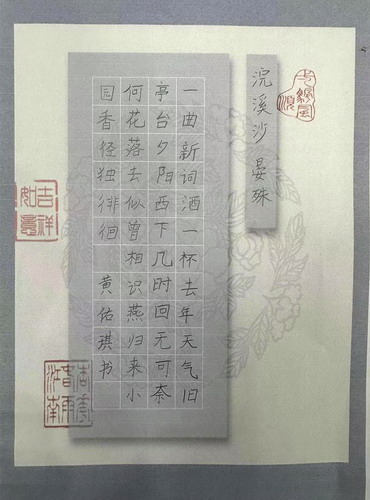 浣溪沙 晏殊
一曲新词酒一杯去年天气旧
亭台夕阳西下几时回无可奈
何花落去似曾相识燕归来小
园香径独徘徊 黄佑琪书
吉祥
如意